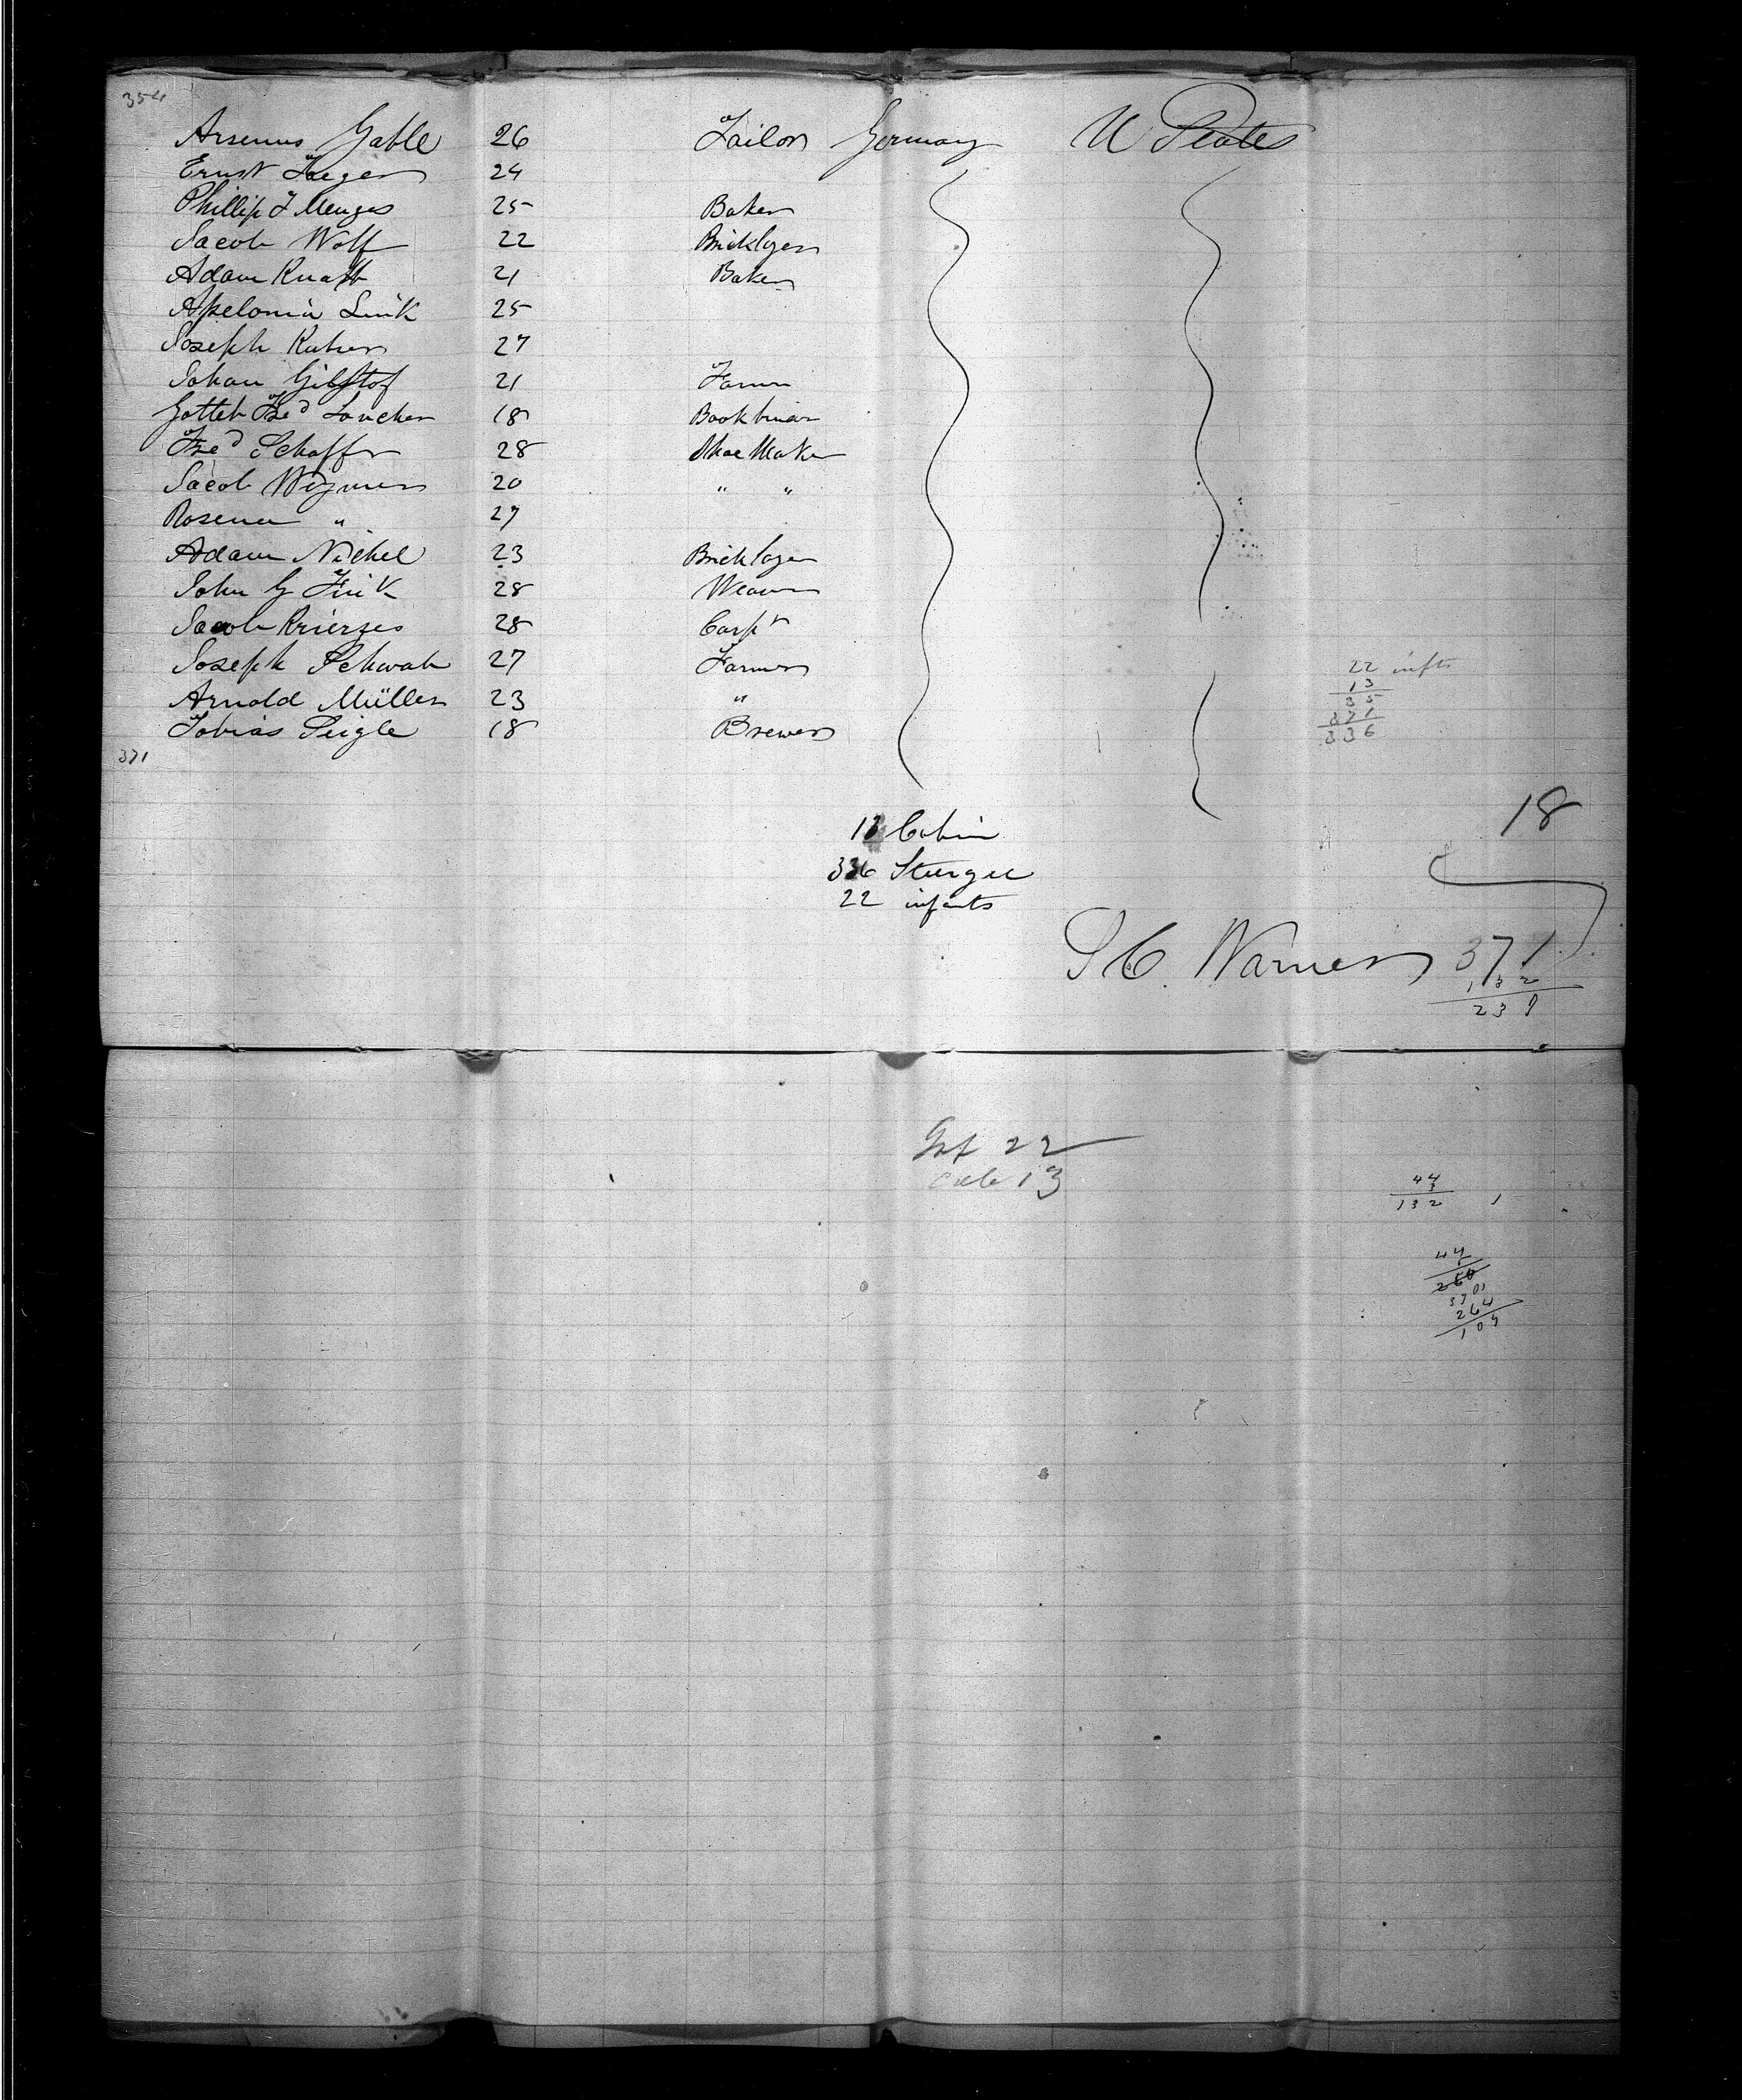 354
Arsenus Gable 26 Tailor Germany U States
Ernst Jaeger 24
Phillip J Menges 25 Baker
Jacob Wolf 22 Bricklyer
Adam Knatt 21 Baker
Apelonia Link 25
Joseph Kuhn 27
Johan 21 Farmr
Gotteb Fred 18 Bookbinar
Fred Schaffr 28 Shoe Maker
Jacob 20 " "
Rosena " 27
Adam Nichel 23 Bricklayer
John G Fink 28 Weaver
Jacob 28 Carpr
Joseph Schwab 27 Farmer
22 infts
13
Arnold Müller 23 "
35
371
Tobias Seigle 18 Brewer
336
371
18
13 Cabin
336 Steerage
22 infants
S C. Warner 371
132
239
Inf 22
Cab 13
44
3
132
44
264